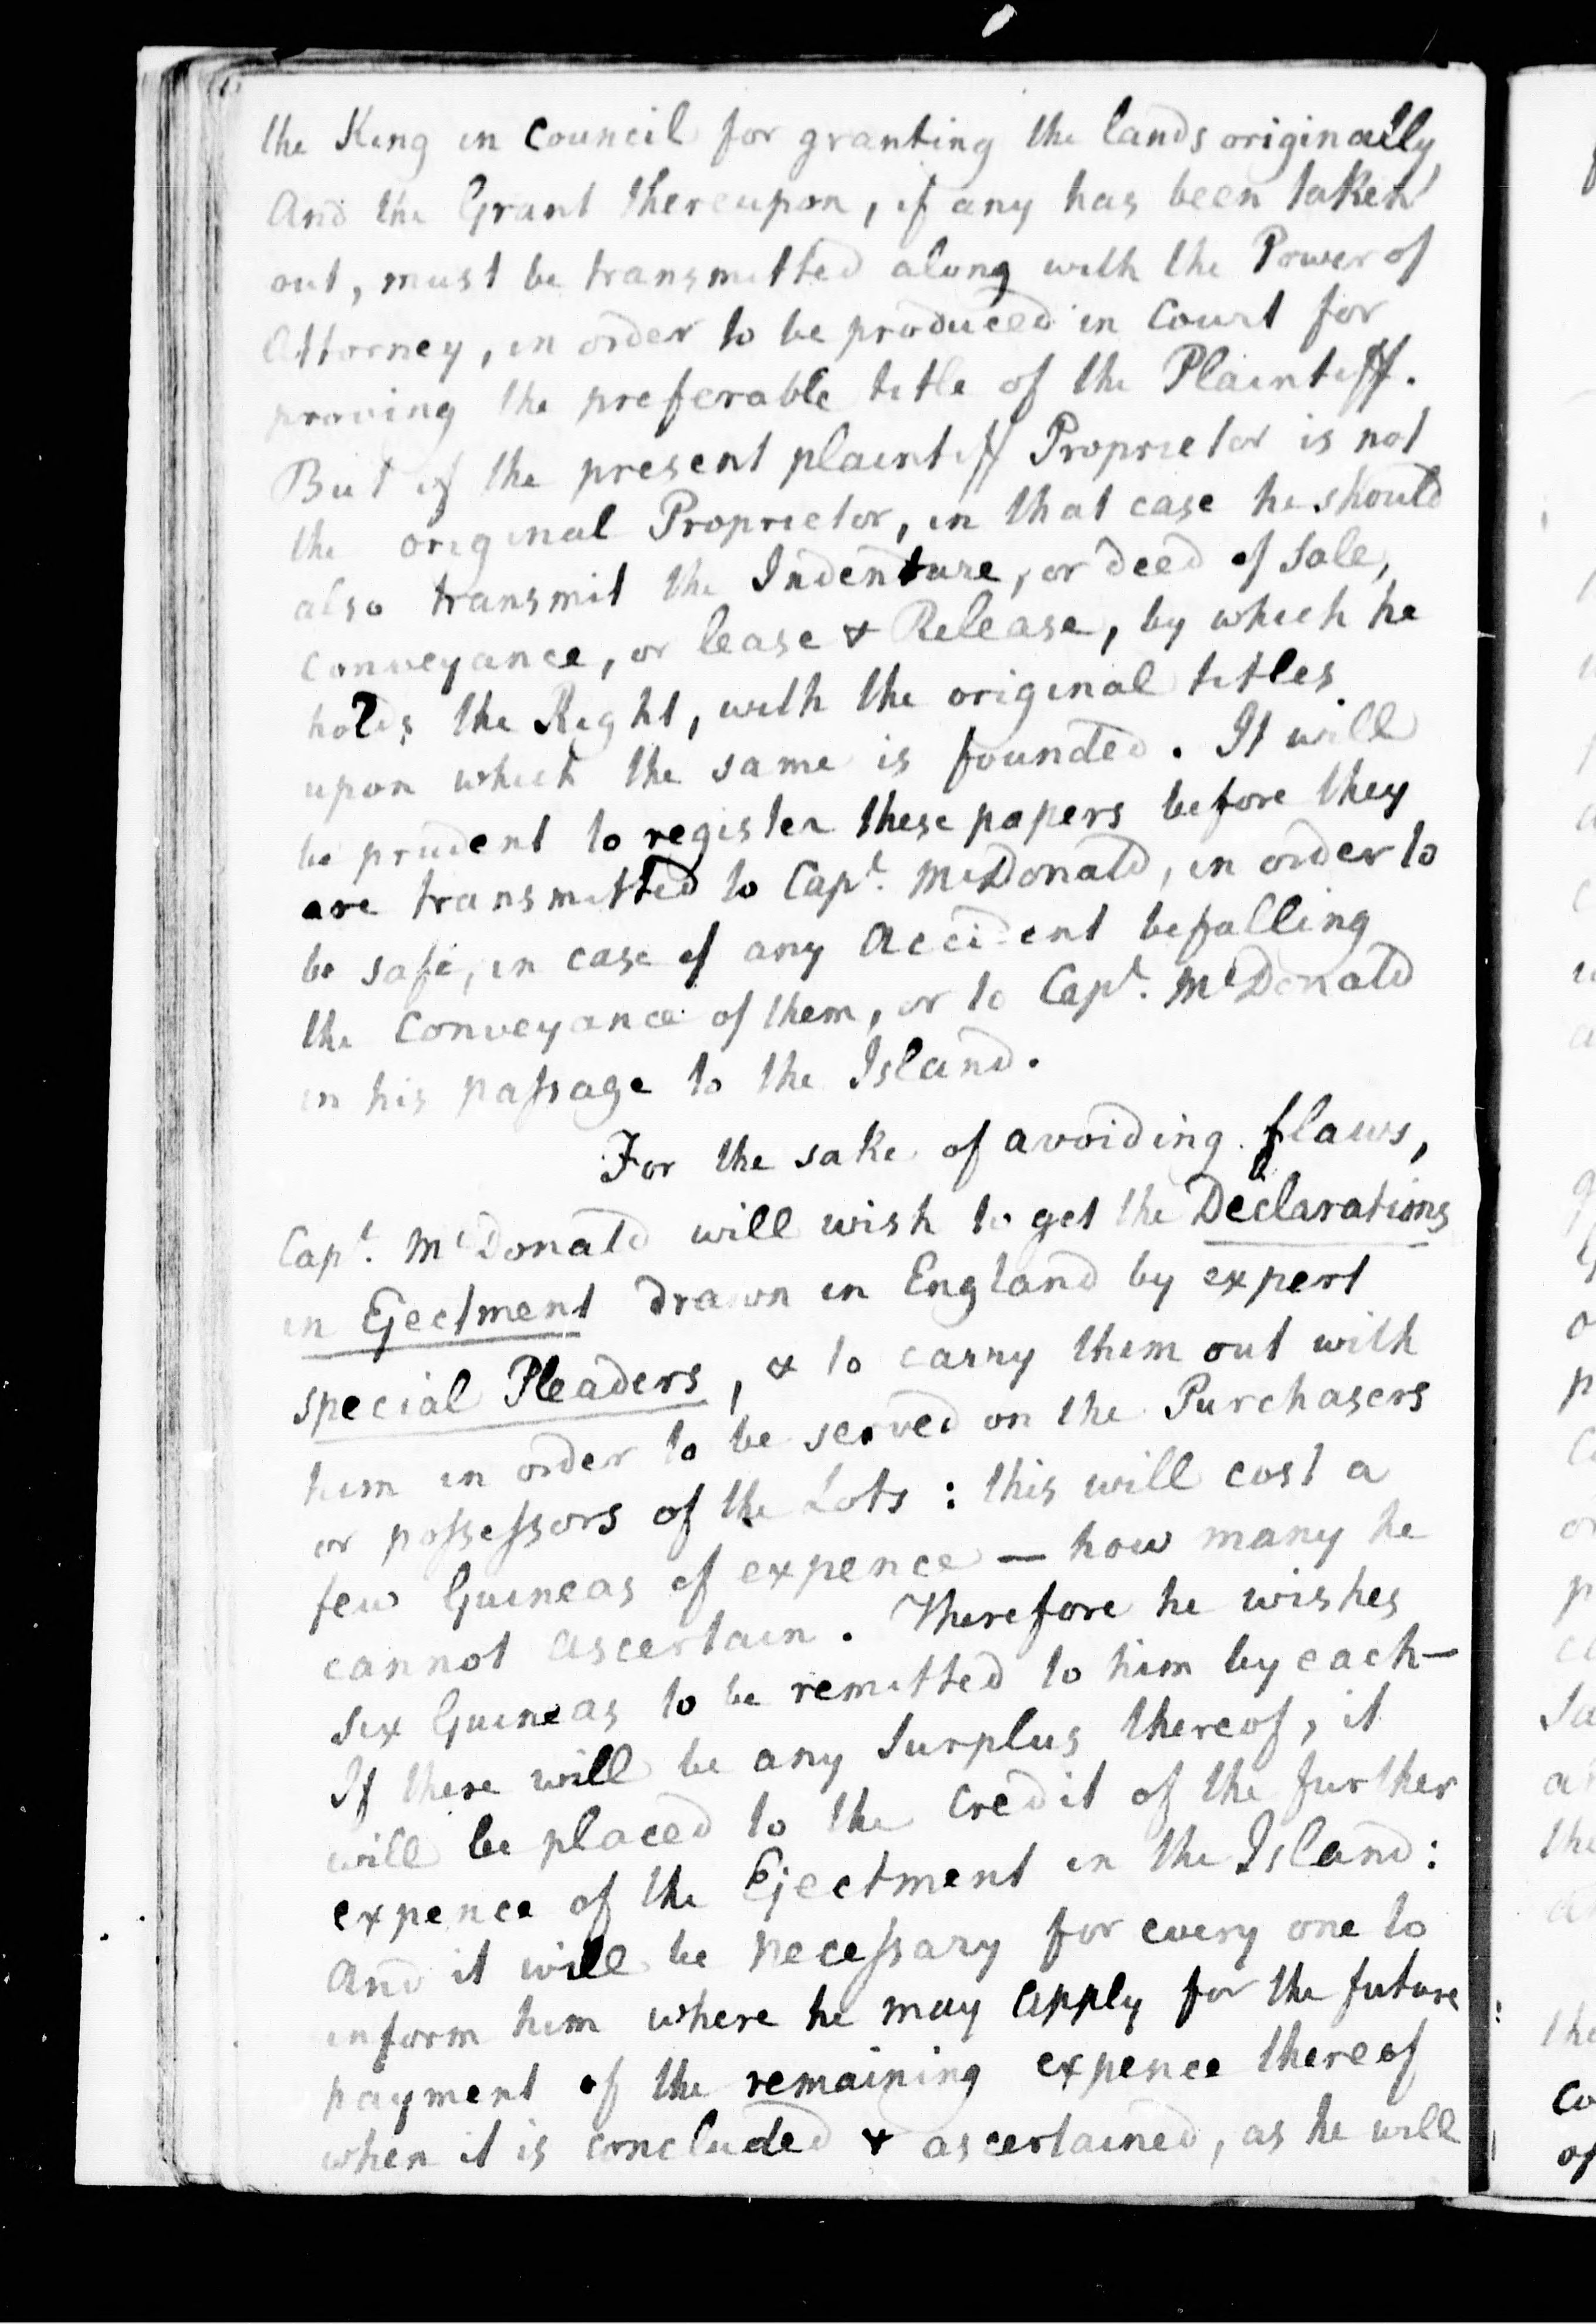 the King in Council for granting the lands originally,
And the Grant thereupon, if any has been taken
out, must be transmitted along with the Power of
Attorney, in order to be produced in Court for
proving the preferable title of the Plaintiff.
But if the present plaintiff Proprietor is not
the original Proprietor, in that case he should
also transmit the Indenture, or deed of Sale,
Conveyance, or lease & Release, by which he
holds the Right, with the original titles
upon which the same is founded. It will
be prudent to register these papers before they
are transmitted to Capt. McDonald, in order to
be safe, in case of any Accident befalling
the Conveyance of them, or to Capt. McDonald
in his paſsage to the Island.
For the sake of avoiding flaws,
Capt. McDonald will wish to get the Declarations
in Ejectment drawn in England by expert
special Pleaders, & to carry them out with
him in order to be served on the Purchasers
or poſseſsors of the Lots : this will cost a
few Guineas of expence — how many he
cannot ascertain. Therefore he wishes
six Guineas to be remitted to him by each—
If there will be any Surplus thereof, it
will be placed to the Credit of the further
expence of the Ejectment in the Island:
And it will be neceſsary for every one to
inform him where he may apply for the future
payment of the remaining expence thereof
when it is concluded & ascertained, as he will